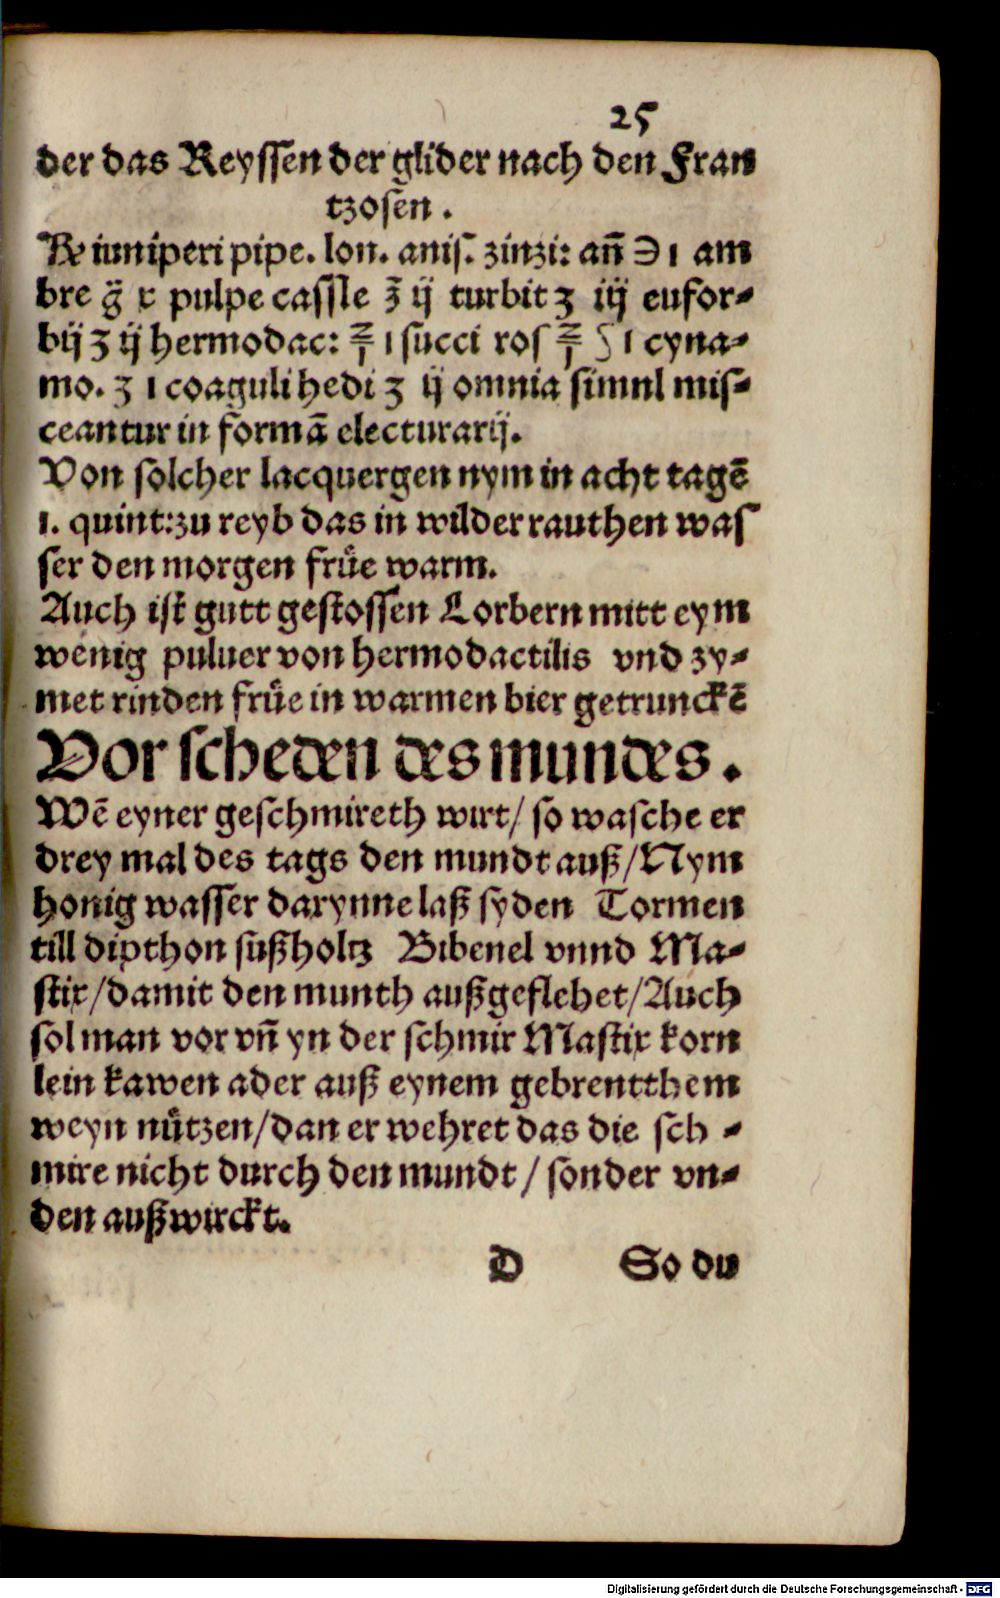 25
der das Reyssen der glider nach den Fran
tzosen .
℞ iuniperi pipe. lon. anis. zinzi: an̄ ℈ ı am
bre g̃ x pulpe cassle ʒ̃ ij turbit ʒ iij eufor-
bij ʒ ij hermodac: ı succi ros ı cyna-
mo. ʒ ı coaguli hedi ʒ ij omnia simnl mis-
ceantur in formã electurarij.
Von solcher lacquergen nym in acht tagē
ı. quint: zu reyb das in wilder rauthen was
ser den morgen frůe warm.
Auch ist gutt gestossen Lorbern mitt eym
wenig puluer von hermodactilis vnd zy-
met rinden frůe in warmen bier getrunckē
Vor scheden des mundes .
Wē eyner geschmireth wirt/ so wasche er
drey mal des tags den mundt auß/Nym
honig wasser darynne laß syden Tormen
till dipthon sußholtz Bibenel vnnd Ma-
stix/damit den munth außgeflehet/Auch
sol man vor vn̄ yn der schmir Mastix korn
lein kawen ader auß eynem gebrentthem
weyn nůtzen/dan er wehret das die sch -
mire nicht durch den mundt / sonder vn-
den außwirckt.
D So du
Digitalisierung gefördert durch die Deutsche Forschungsgemeinschaft - DFG